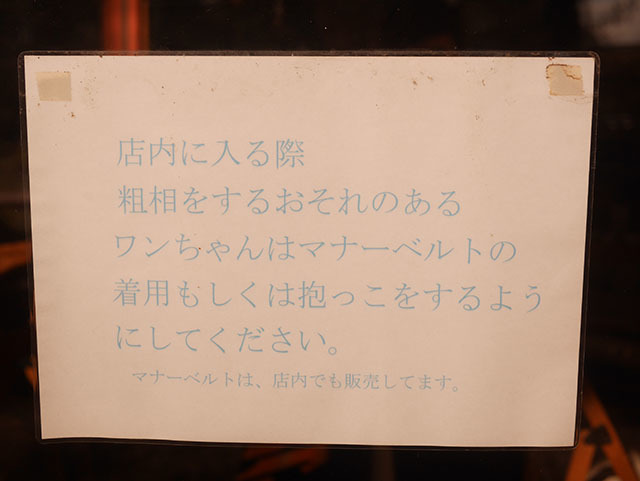 店内に入る際
粗相をするおそれのある
ワンちゃんはマナーベルトの
着用もしくは抱っこをするよう
にしてください。
マナーベルトは、店内でも販売してます。